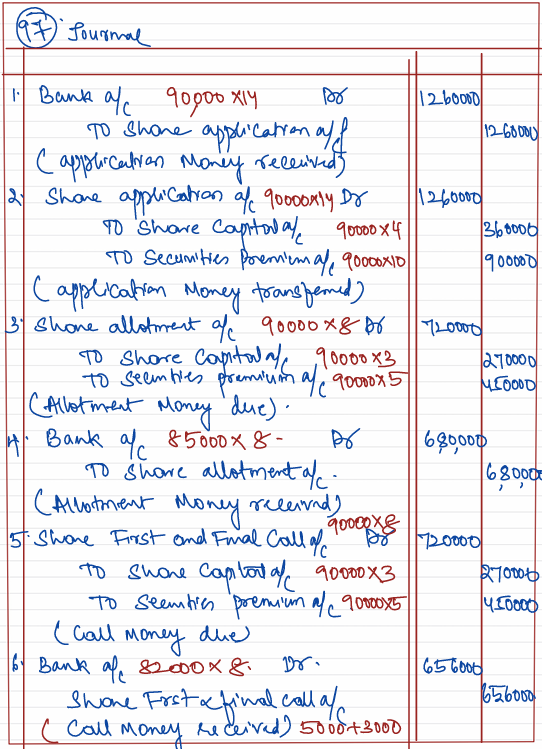 97 Journal
1. Bank a/c 90,000 x14 Dr 1260000
To Share application a/c 1260000
(application Money received)
2. Share application a/c 90000x14 Dr 1260000
To Share Capital a/c 90000x4 360000
To Securities premium a/c 90000x10 900000
(application Money transferred)
3. Share allotment a/c 90000x8 Dr 720000
To Share Capital a/c 90000x3 270000
To Securities premium a/c 90000x5 450000
(Allotment Money due).
4. Bank a/c 85000x8- Dr 680,000
To Share allotment a/c. 680,000
(Allotment Money received)
90000x8
5. Share First and Final Call a/c Dr 720000
To Share Capital a/c 90000x3 270000
To Securities premium a/c 90000x5 450000
(Call Money due)
6. Bank a/c 82000x8. Dr. 656000
Share First & final call a/c 656000
(Call Money received) 5000+3000